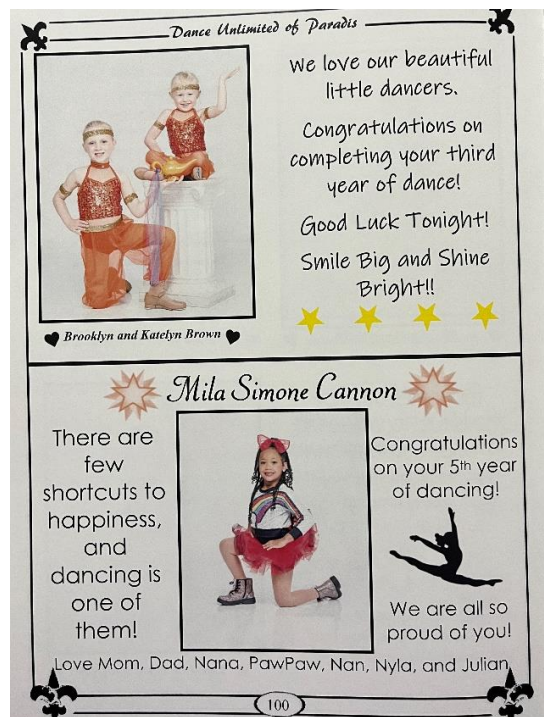 Dance Unlimited of Paradis
We love our beautiful
little dancers.
Congratulations on
completing your third
year of dance!
Good Luck Tonight!
Smile Big and Shine
Bright!!
Brooklyn and Katelyn Brown
Mila Simone Cannon
There are
few
shortcuts to
happiness,
and
dancing is
one of
them!
Congratulations
on your 5th year
of dancing!
We are all so
proud of you!
Love Mom, Dad, Nana, PawPaw, Nan, Nyla, and Julian
100